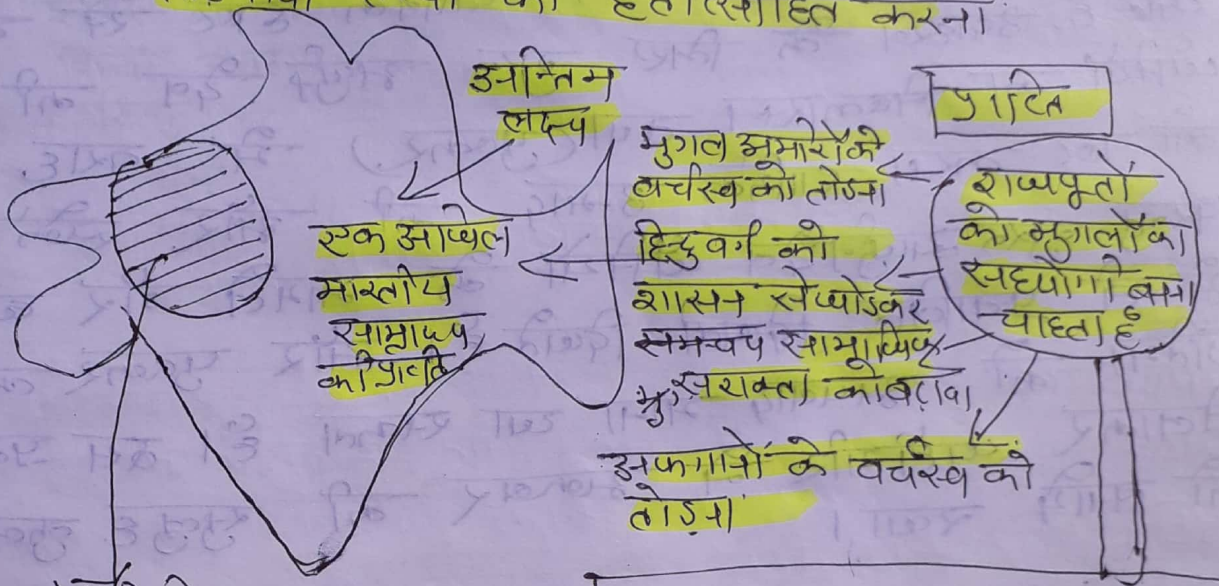 को हतोत्साहित करना
अन्तिम
लक्ष्य
एक अखिल
भारतीय
साम्राज्य
की प्राप्ति
मुगल अमीरों के
वर्चस्व को तोड़ना
हिन्दु वर्ग को
शासन से जोडकर
समन्वय सामाजिक
समरसता को बढ़ावा
अफगानों के वर्चस्व को
तोड़ना
राजपूतों
को मुगलों का
सहयोगी बनना
चाहता है